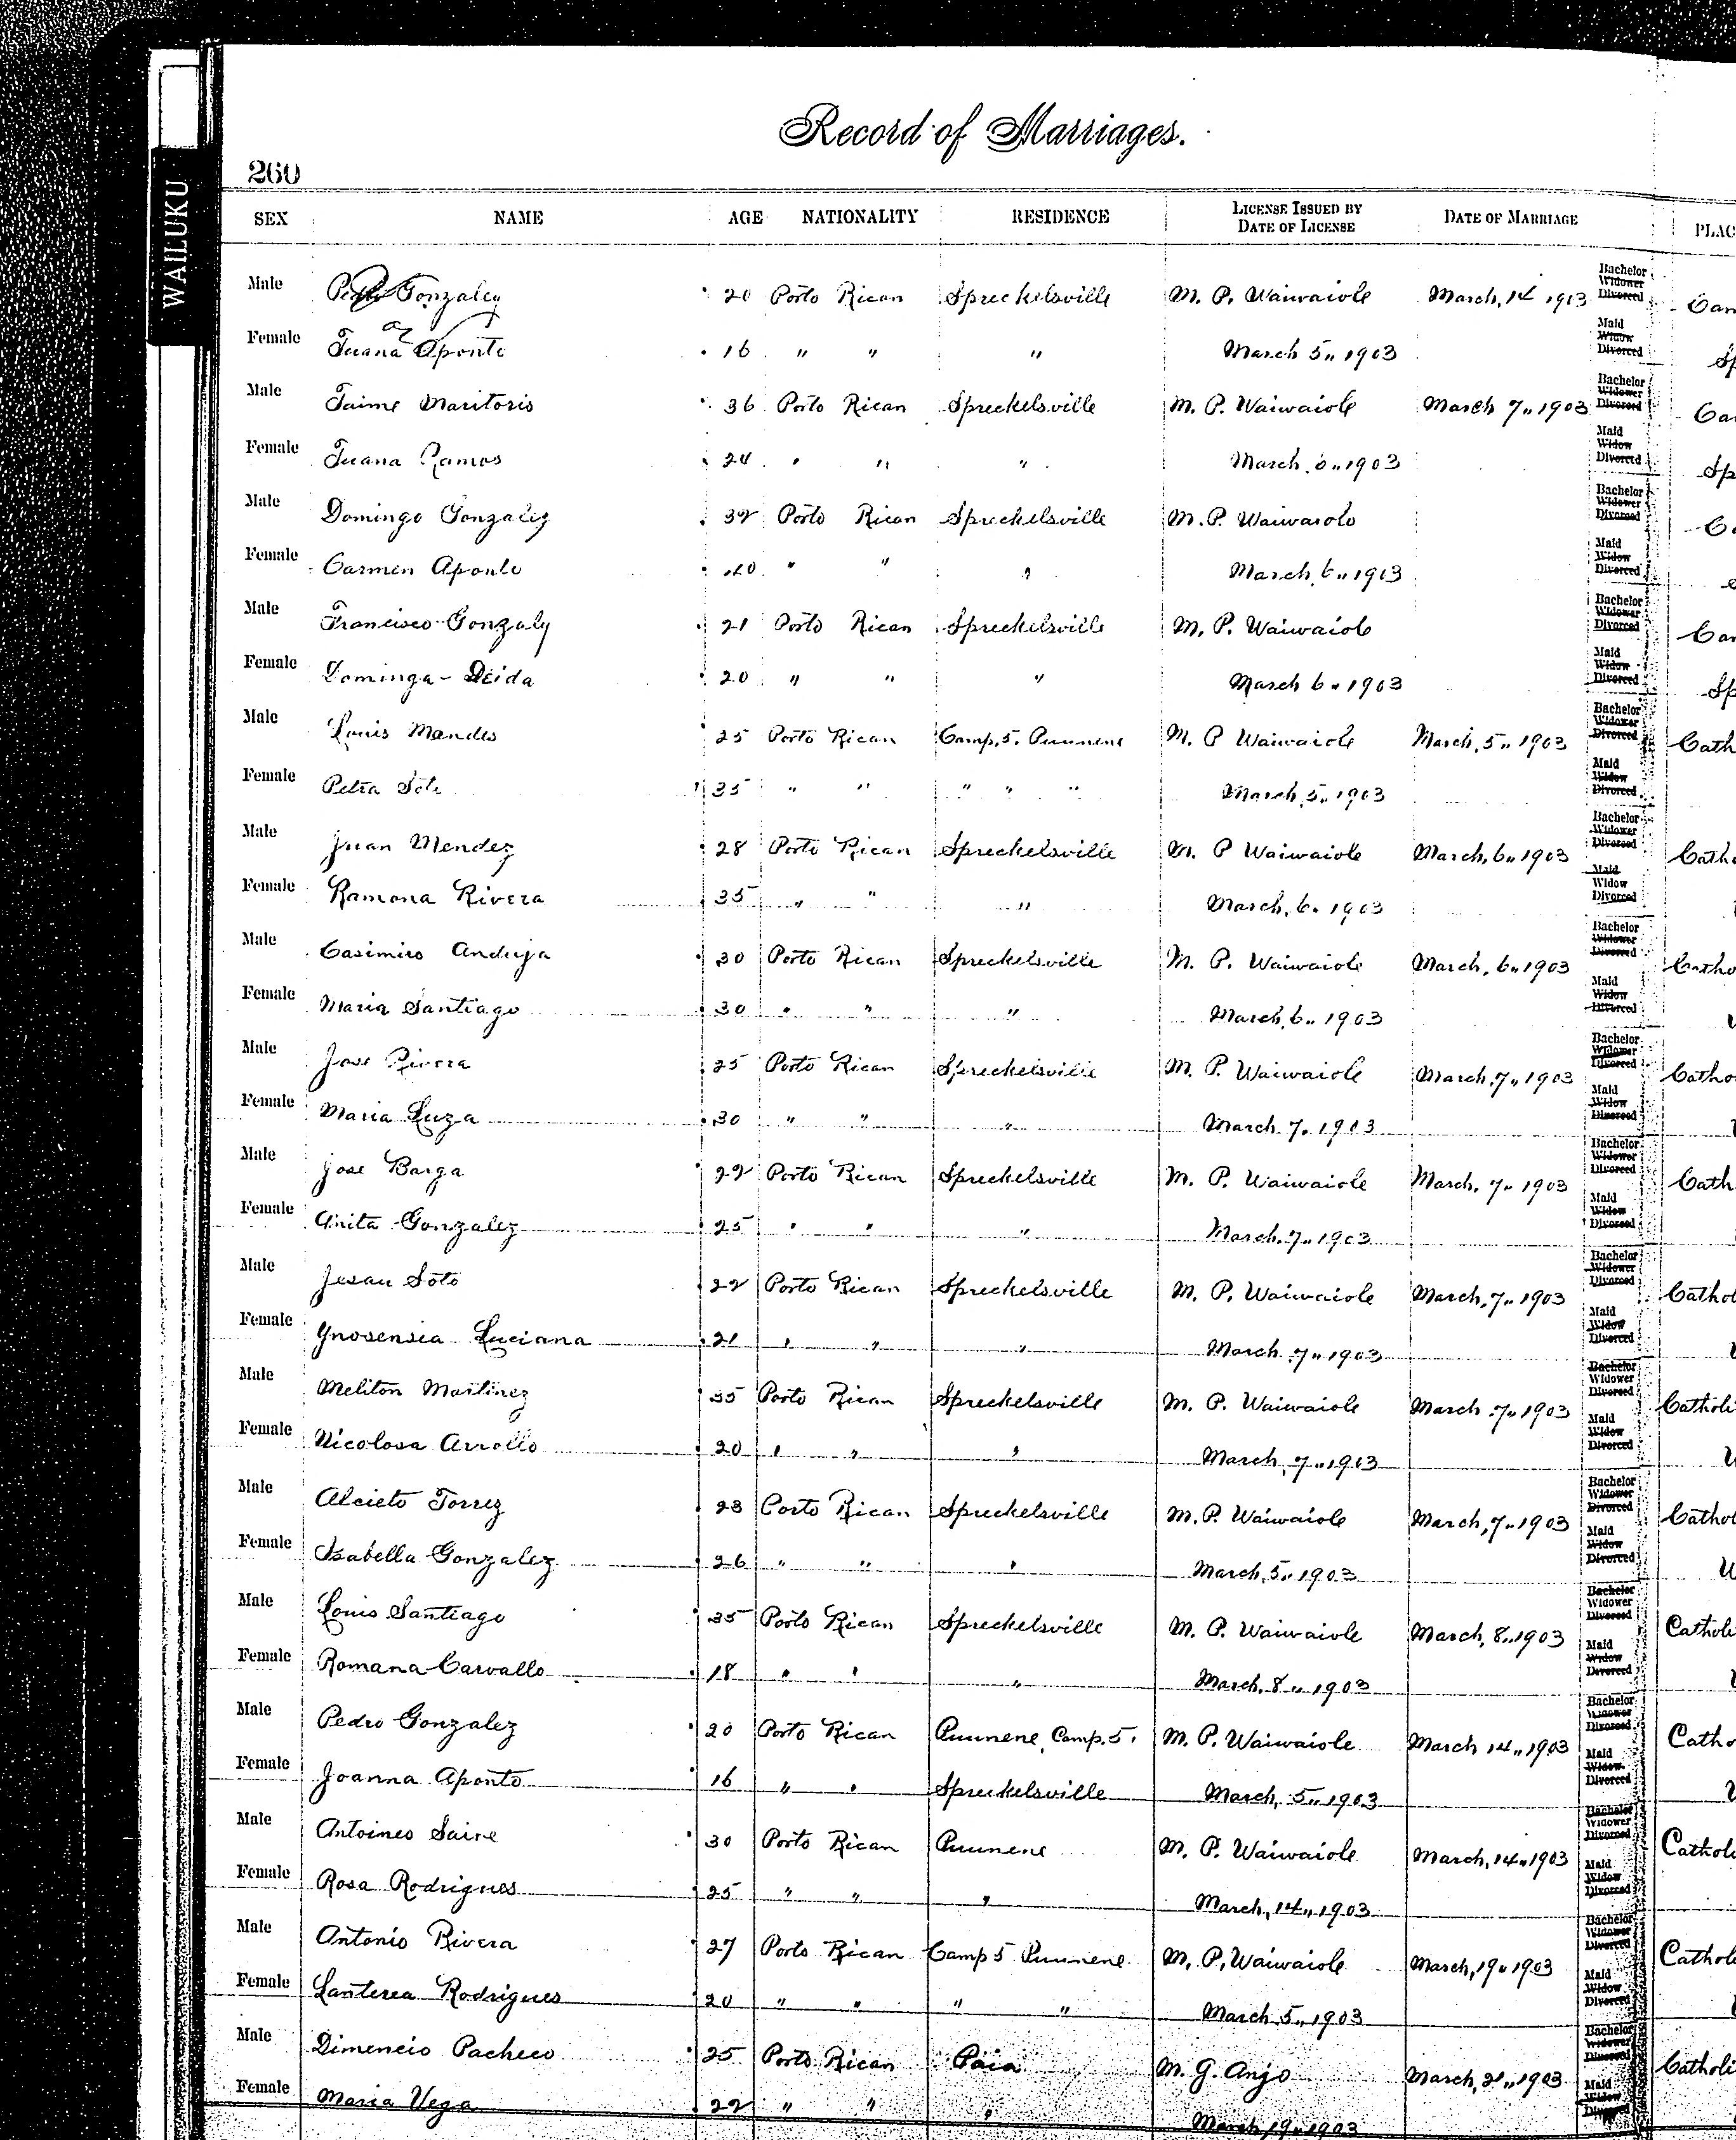 WAILUKU
Record of Marriages.
260
SEX NAME AGE NATIONALITY RESIDENCE LICENSE ISSUED BY DATE OF LICENSE DATE OF MARRIAGE PLAC
Male Pedro Gonzalez 20 Porto Rican Spreckelsville M. P. Waiwaiole March, 14 1903 Bachelor Widower Divorced Can
Female Juana Aponte 16 " " " March 5,, 1903 Maid Widow Divorced Sp
Male Jaime Maritoris 36 Porto Rican Spreckelsville M. P. Waiwaiole March 7,, 1903 Bachelor Widower Divorced Ca
Female Juana Ramos 24 " " " March, 6,, 1903 Maid Widow Divorced Sp
Male Domingo Gonzalez 32 Porto Rican Spreckelsville M. P. Waiwaiole Bachelor Widower Divorced Ca
Female Carmen Aponte " " " March, 6,, 1903 Maid Widow Divorced S
Male Francisco Gonzaly 21 Porto Rican Spreckelsville M. P. Waiwaiole Bachelor Widower Divorced Can
Female Dominga - Deida 20 " " " March 6,, 1903 Maid Widow Divorced Sp
Male Louis Mendes 25 Porto Rican Camp, 5. Puunene M. P Waiwaiole March, 5,, 1903 Bachelor Widower Divorced Cath
Female Petra Soto 35 " " " " " March, 5,, 1903 Maid Widow Divorced
Male Juan Mendez 28 Porto Rican Spreckelsville M. P Waiwaiole March, 6,, 1903 Bachelor Widower Divorced Catho
Female Ramona Rivera 35 " " " March, 6. 1903 Maid Widow Divorced
Male Casimiro Anduja 30 Porto Rican Spreckelsville M. P. Waiwaiole March, 6,, 1903 Bachelor Widower Divorced Catho
Female Maria Santiago 30 " " " March, 6,, 1903 Maid Widow Divorced
Male Jose Rivera 25 Porto Rican Spreckelsville M. P. Waiwaiole March, 7,, 1903 Bachelor Widower Divorced Catho
Female Maria Luza 30 " " " March 7. 1903 Maid Widow Divorced
Male Jose Barga 22 Porto Rican Spreckelsville M. P. Waiwaiole March, 7,, 1903 Bachelor Widower Divorced Cath
Female Anita Gonzalez 25 " " " March, 7,, 1903 Maid Widow Divorced
Male Jesau Soto 22 Porto Rican Spreckelsville M. P. Waiwaiole March, 7,, 1903 Bachelor Widower Divorced Cathol
Female Ynosensia Luciana 21 " " " March 7,, 1903 Maid Widow Divorced
Male Meliton Martinez 35 Porto Rican Spreckelsville M. P. Waiwaiole March 7,, 1903 Bachelor Widower Divorced Catholi
Female Nicolosa Arrollo 20 " " " March, 7,, 1903 Maid Widow Divorced
Male Alcieto Torrez 23 Porto Rican Spreckelsville M. P. Waiwaiole March, 7,, 1903 Bachelor Widower Divorced Cathol
Female Isabella Gonzalez 26 " " " March, 5,, 1903 Maid Widow Divorced
Male Louis Santiago 35 Porto Rican Spreckelsville M. P. Waiwaiole March, 8,, 1903 Bachelor Widower Divorced Catholi
Female Romana Carvallo 18 " " " March, 8,, 1903 Maid Widow Divorced
Male Pedro Gonzalez 20 Porto Rican Puunene, Camp. 5. M. P. Waiwaiole March 14,, 1903 Bachelor Widower Divorced Catho
Female Joanna Aponto 16 " " Spreckelsville March, 5,, 1903 Maid Widow Divorced
Male Antoines Saire 30 Porto Rican Puunene M. P. Waiwaiole March, 14,, 1903 Bachelor Widower Divorced Catholi
Female Rosa Rodrigues 25 " " " March, 14,, 1903 Maid Widow Divorced
Male Antonio Rivera 27 Porto Rican Camp 5 Puunene M. P. Waiwaiole March, 19,, 1903 Bachelor Widower Divorced Cathole
Female Lanterea Rodrigues 20 " " " " March, 5,, 1903 Maid Widow Divorced
Male Dimencio Pacheco 25 Porto Rican Paia M. G. Anjo March, 21,, 1903 Bachelor Widower Divorced Catholi
Female Maria Vega 22 " " " March, 19,, 1903 Maid Widow Divorced